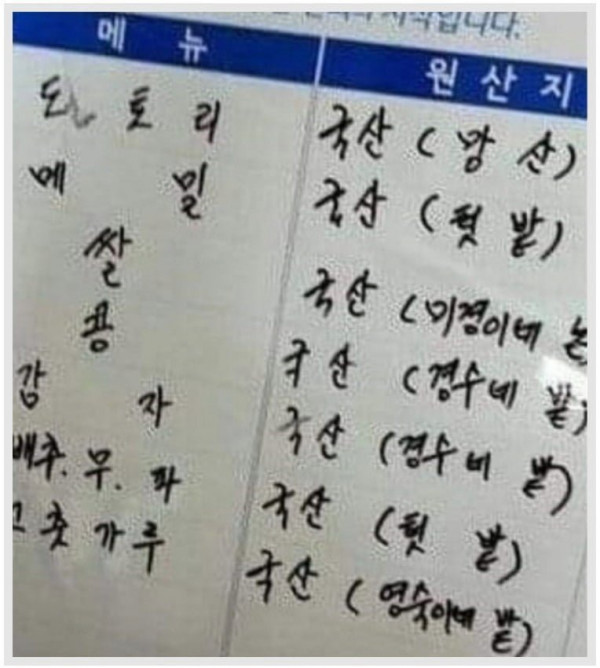 지역입니다.
메뉴 원산지
도토리 국산 (앞산)
메밀 국산 (텃밭)
쌀 국산 (미경이네 논)
콩 국산 (경수네 밭)
감자 국산 (경수네 밭)
배추. 무. 파 국산 (텃밭)
고춧가루 국산 (영숙이네 밭)